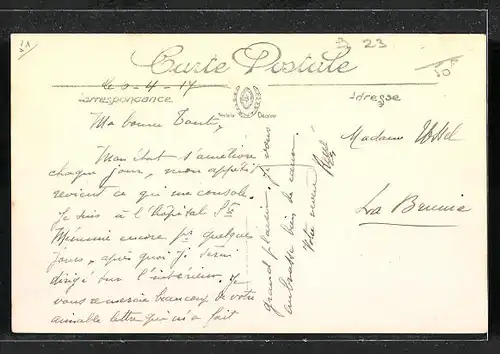 3 23
50
Carte Postale
le 3-4-17
Correspondance
Adresse
Ma bonne Tante,
Mon état s'améliore
chaque jour, mon appétit
revient ce qui me console.
Je suis à l'hôpital Ste
Mémmie encore pr quelques
jours, après quoi je serai
dirigé sur l'intérieur. Je
vous remercie beaucoup de votre
aimable lettre qui m'a fait
grand plaisir, je vous
embrasse bien de cœur.
Votre neveu
René
Madame
La Brunie